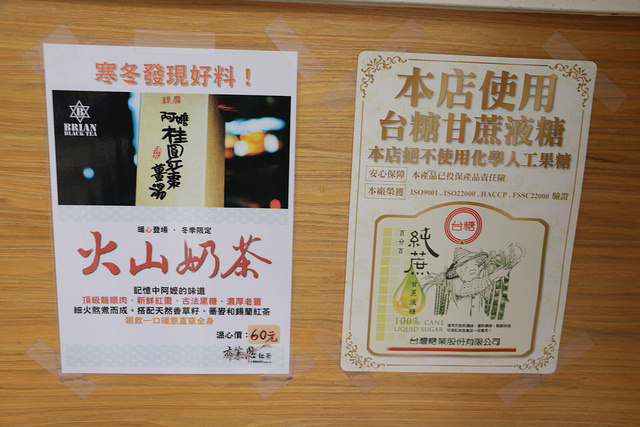 寒冬發現好料！
BRIAN
BLACK TEA
阿嬤
桂圓紅棗
薑湯
暖心登場・冬季限定
火山奶茶
記憶中阿嬤的味道
頂級龍眼肉・新鮮紅棗・古法黑糖・濃厚老薑
細火熬煮而成。搭配天然香草籽、蕎麥和錫蘭紅茶
溫心價：60元
紅茶
本店使用
台糖甘蔗液糖
本店絕不使用化學人工果糖
安心保障 本產品已投保產品責任險
本廠榮獲 ISO9001 . ISO22000 . HACCP . FSSC22000 驗證
台糖
百分百
純蔗
甘蔗液糖
100% CANE
LIQUID SUGAR
台灣糖業股份有限公司